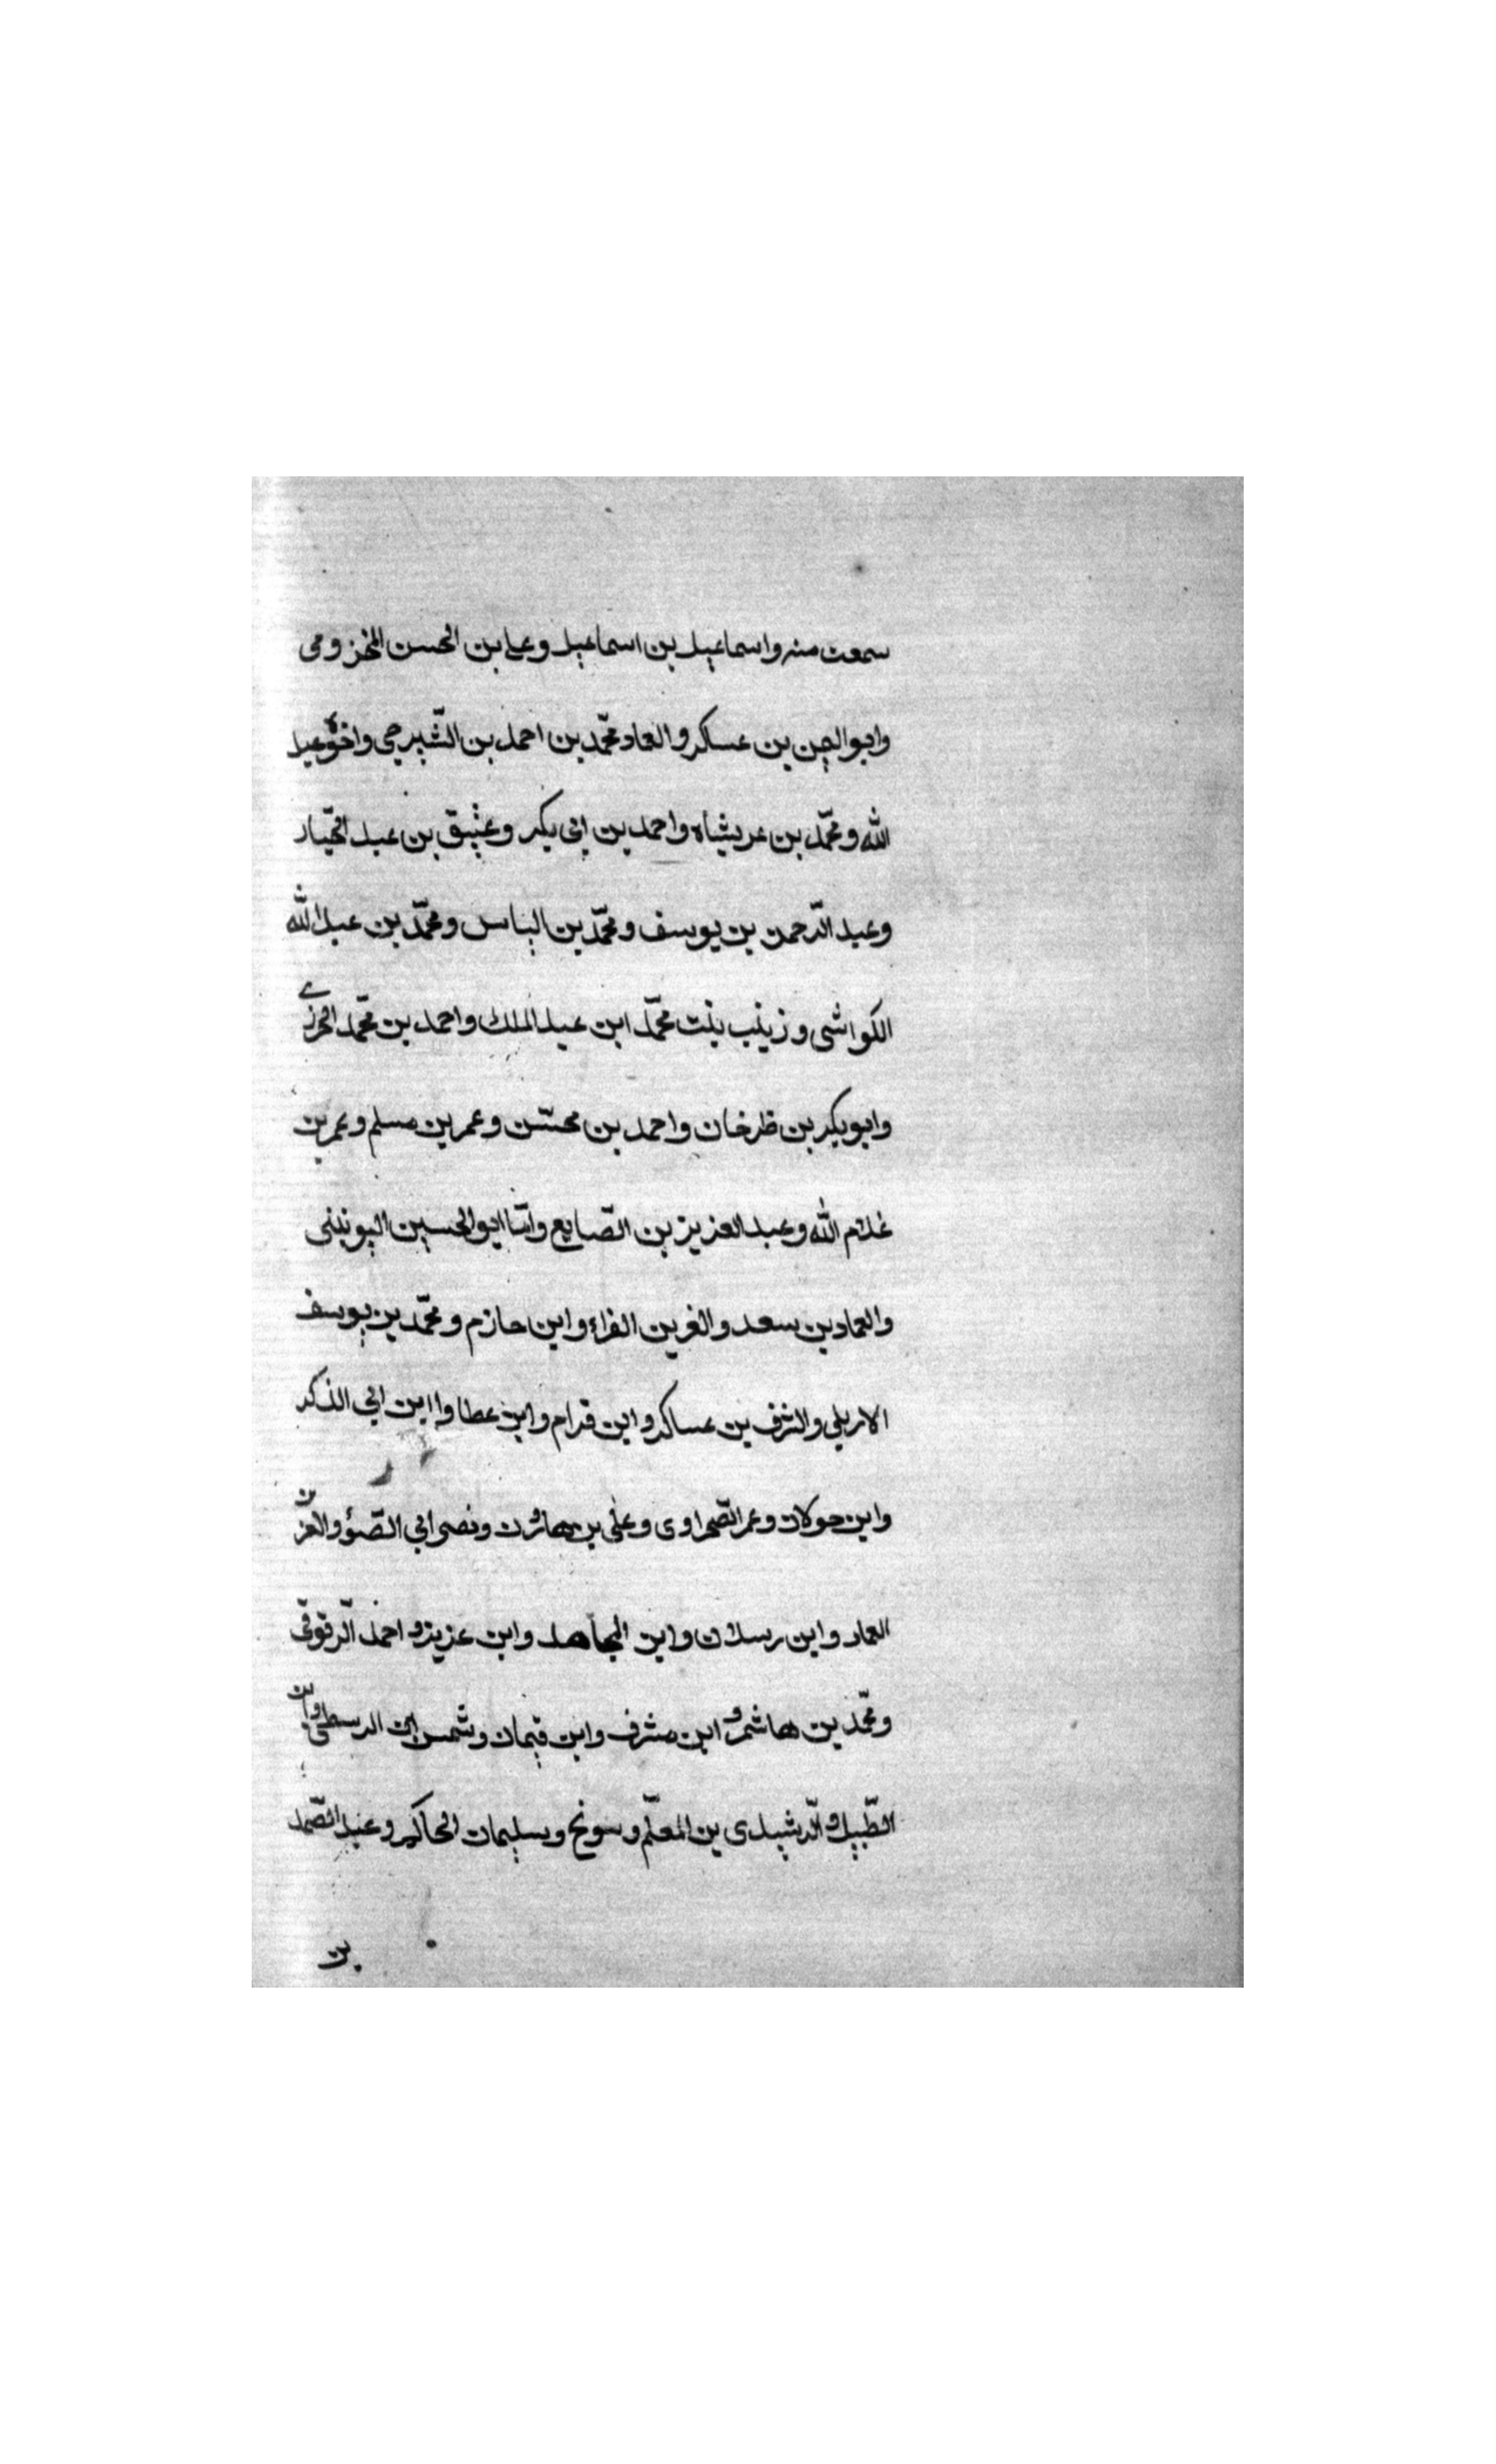 سمعت منه واسماعيل بن اسماعيل وعلي بن الحسن المخزومى
وابو اليمن بن عساكر والعماد محمّد بن احمد بن الشّيرجى واخوه عبد
الله ومحمّد بن عربشاه واحمد بن ابى بكر وعتيق بن عبد الجبّار
وعبد الرّحمن بن يوسف ومحمّد بن الياس ومحمّد بن عبد الله
الكواشى وزينب بنت محمّد ابن عبد الملك واحمد بن محمّد
وابو بكر بن طرخان واحمد بن محسّن وعمر بن مسلم وعمر بن
غلام الله وعبد العزيز بن الصّايع وامّا ابو الحسين اليونينى
والعماد بن سعد والغر بن الفراء وابن حازم ومحمّد بن يوسف
الاربلي والشرف بن عساكر وابن قرام وابن عطا وا ابن ابي الذكر
وابن حولان وعمر الصّحراوى وعلى بن هارون ونصر ابي الضّوؤ والعزّ بن
العماد وابن رسلان وابن المجاهد وابن عزيز واحمد الزّقوقى
ومحمّد بن هاشم وابن مشرف وابن قيمان وشمس ابن وابن
الطّبيل والرّشيدى بن المعلّم وسونج وسليمان الحاكم وعبد الصّمد
بن